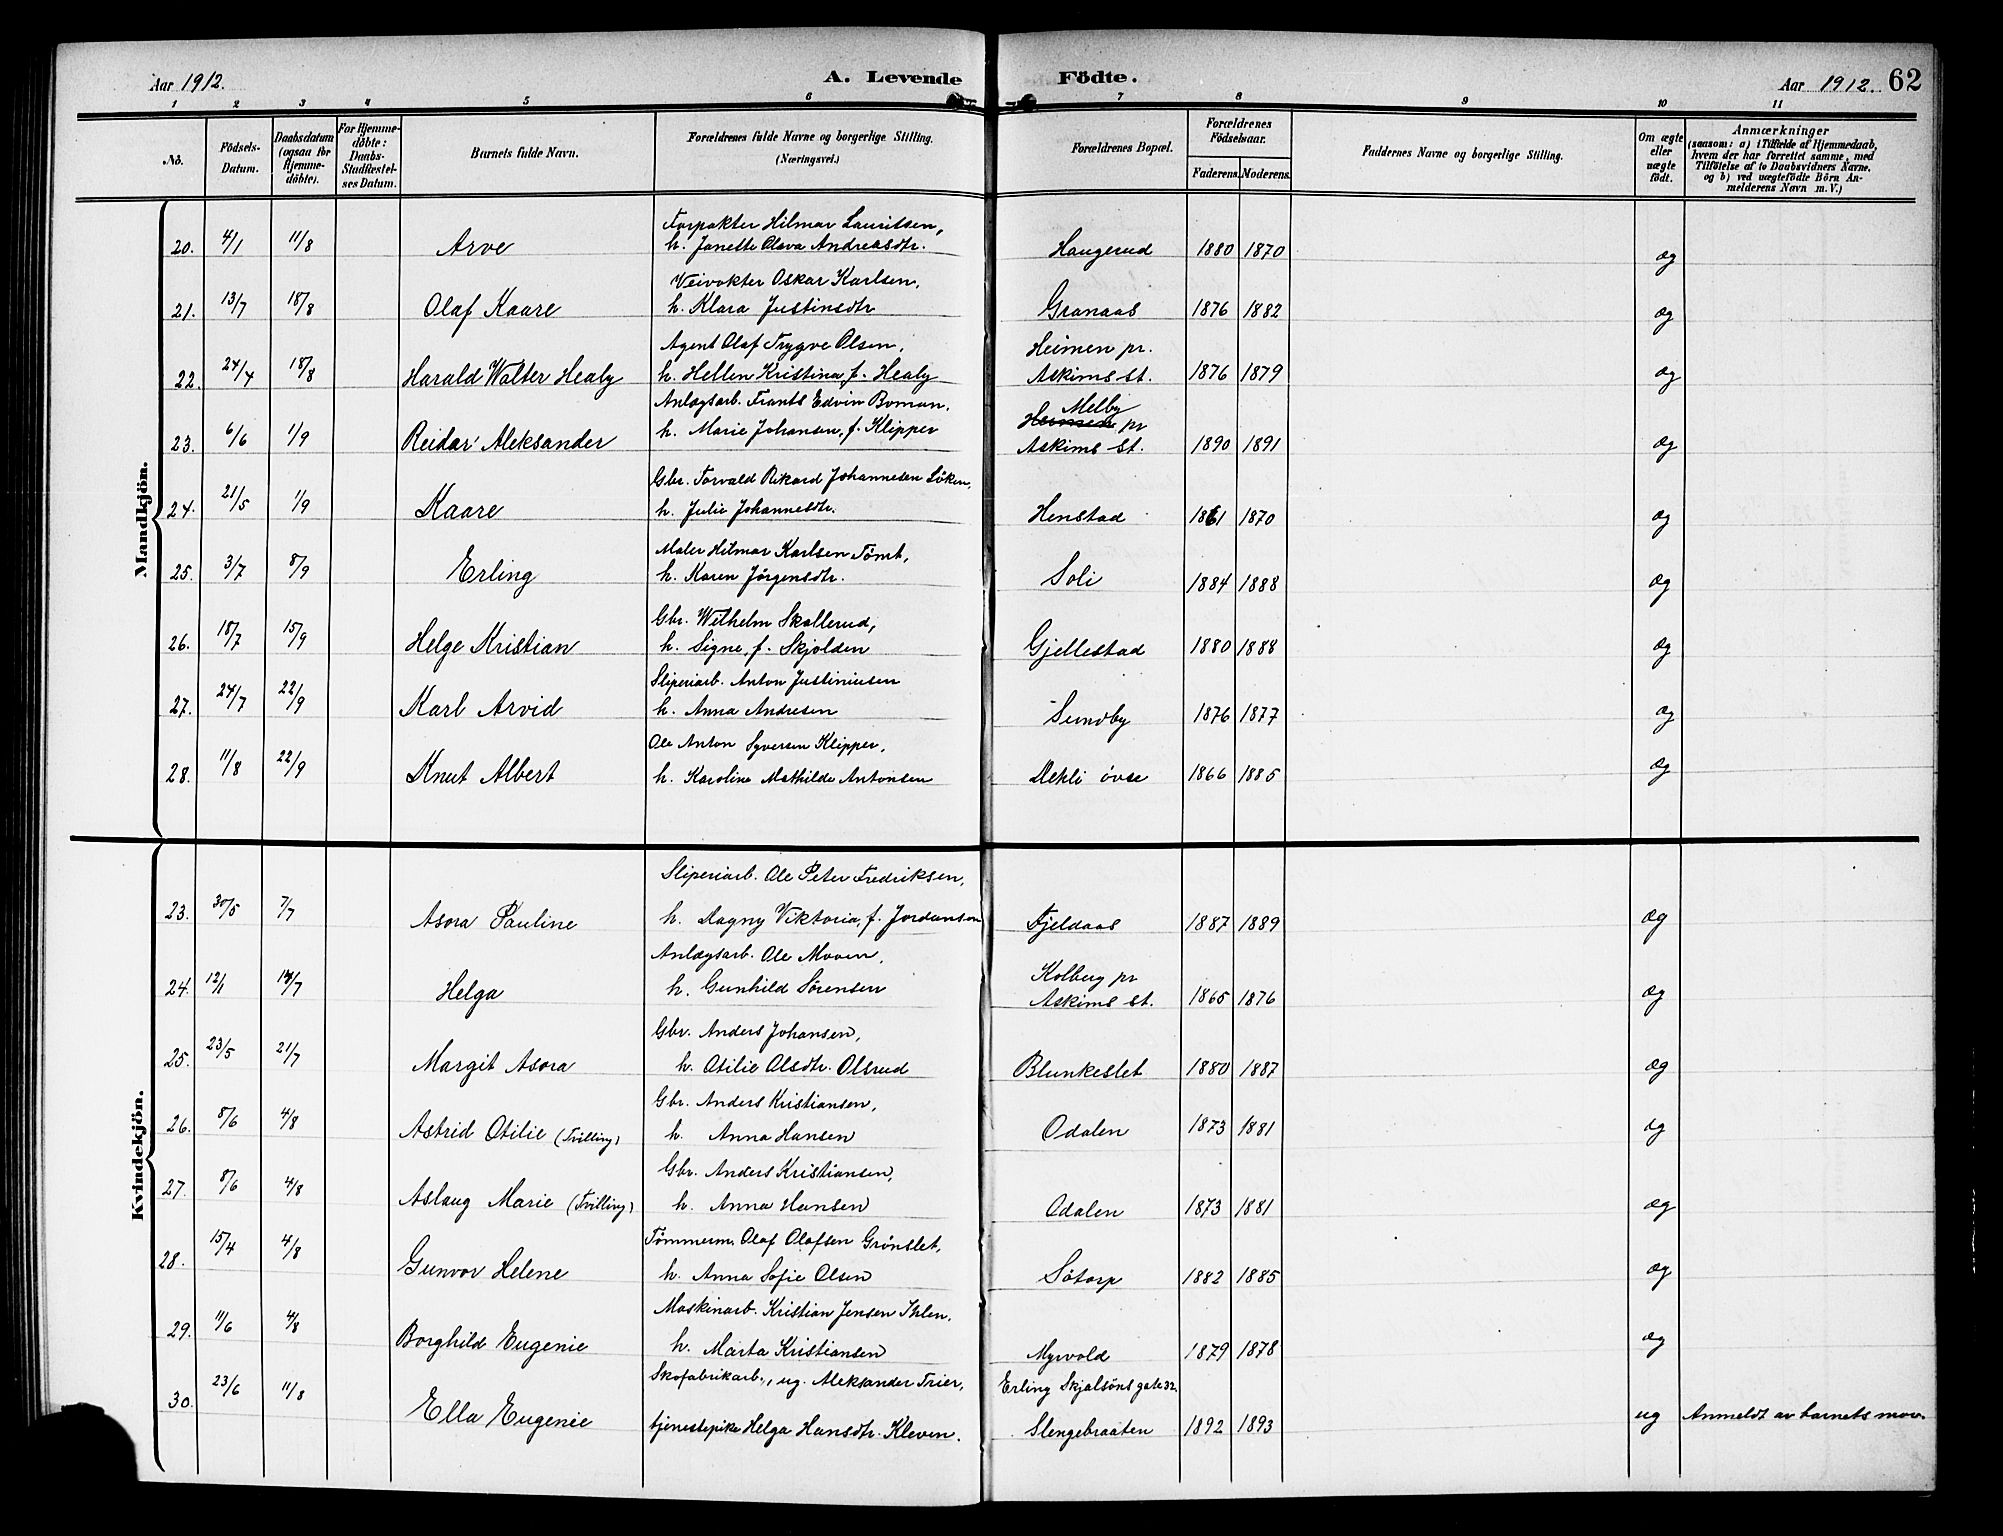 Aar 1912.
A. Levende Födte.
Aar 1912. 62
1 2 3 4 5 6 7 8 9 10 11
No.
Födsels-Datum.
Daabsdatum (ogsaa for Hjemmedöbte).
For Hjemmedöbte: Daabs-Stadfæstelses Datum.
Barnets fulde Navn.
Forældrenes fulde Navne og borgerlige Stilling. (Næringsvei.)
Forældrenes Bopæl.
Forældrenes Födselsaar.
Faderens. Moderens.
Faddernes Navne og borgerlige Stilling.
Om ægte eller uægte födt.
Anmærkninger (saasom: a) i Tilfælde af Hjemmedaab, hvem der har forrettet samme, med Tilföielse af to Daabsvidners Navne, og b) ved uægtefödte Börn Anmelderens Navn m. V.)
Mandkjön.
Forpakter Hilmar Lauritsen,
20. 4/1 11/8 Arve h. Janette Olava Andreasdtr. Haugerud 1880 1870 æg
Veivokter Oskar Karlsen,
21. 13/7 18/8 Olaf Kaare h. Klara Justinsdtr Granaas 1876 1882 æg
Agent Olaf Trygve Olsen, Heimen pr.
22. 24/4 18/8 Harald Walter Healy h. Hellen Kristina, f. Healy Askims st. 1876 1879 æg
Anlægsarb. Frants Edvin Boman, Melby
23. 6/6 1/9 Reidar Aleksander h. Marie Johansen, f. Klipper Heimen pr Askims st. 1890 1891 æg
Gbr. Torvald Rikard Johannesen Löken,
24. 21/5 1/9 Kaare h. Julie Johannesdtr. Henstad 1861 1870 æg
Maler Hilmar Karlsen Tömt,
25. 3/7 8/9 Erling h. Karen Jörgensdtr. Soli 1884 1888 æg
Gbr. Wilhelm Skallerud,
26. 18/7 15/9 Helge Kristian h. Signe, f. Skjolden Gjellestad 1880 1888 æg
Sliperiarb. Anton Justiniusen
27. 24/7 22/9 Karl Arvid h. Anna Andresen Sundby 1876 1877 æg
Ole Anton Syversen Klipper,
28. 11/8 22/9 Knut Albert h. Karoline Mathilde Antonsen Dekli övre 1866 1885 æg
Kvindekjön.
Sliperiarb. Ole Peter Fredriksen,
23. 30/5 7/7 Asora Pauline h. Dagny Viktoria, f. Jordansen Fjeldaas 1887 1889 æg
Anlægsarb. Ole Mooen, Kolberg pr
24. 12/1 14/7 Helga h. Gunhild Sörensen Askims st. 1865 1876 æg
Gbr. Anders Johansen,
25. 23/5 21/7 Margit Asora h. Otilie Olsdtr. Olsrud Blunkeslet 1880 1887 æg
Gbr. Anders Kristiansen,
26. 8/6 4/8 Astrid Otilie (Tvilling) h. Anna Hansen Odalen 1873 1881 æg
Gbr. Anders Kristiansen,
27. 8/6 4/8 Aslaug Marie (Tvilling) h. Anna Hansen Odalen 1873 1881 æg
Tömmerm. Olaf Olafsen Grönslet,
28. 15/4 4/8 Gunvor Helene h. Anna Sofie Olsen Sötorp 1882 1885 æg
Maskinarb. Kristian Jensen Ihlen,
29. 11/6 4/8 Borghild Eugenie h. Marta Kristiansen Myrvold 1879 1878 æg
Skofabrikarb., ug. Aleksander Trier, Erling Skjalsöns gate 32.
30. 23/6 11/8 Ella Eugenie tjenestepike Helga Hansdtr. Kleven. Slengebraaten 1892 1893 ug Anmeldt av barnets mor.